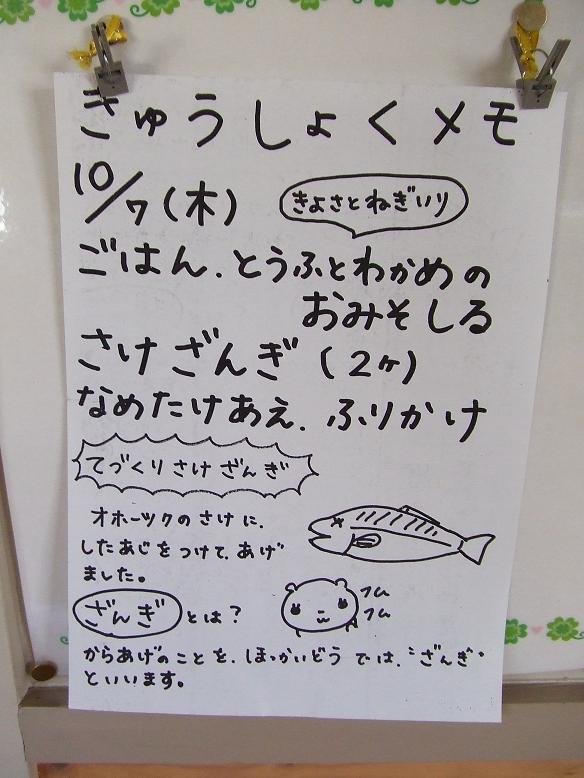 きゅうしょくメモ
10/7(木)
きよさとねぎいり
ごはん、とうふとわかめの
おみそしる
さけざんぎ(2ヶ)
なめたけあえ、ふりかけ
てづくりさけざんぎ
オホーツクのさけに、
したあじをつけて、あげ
ました。
ざんぎとは?
フム
フム
からあげのことを、ほっかいどうでは、"ざんぎ"
といいます。